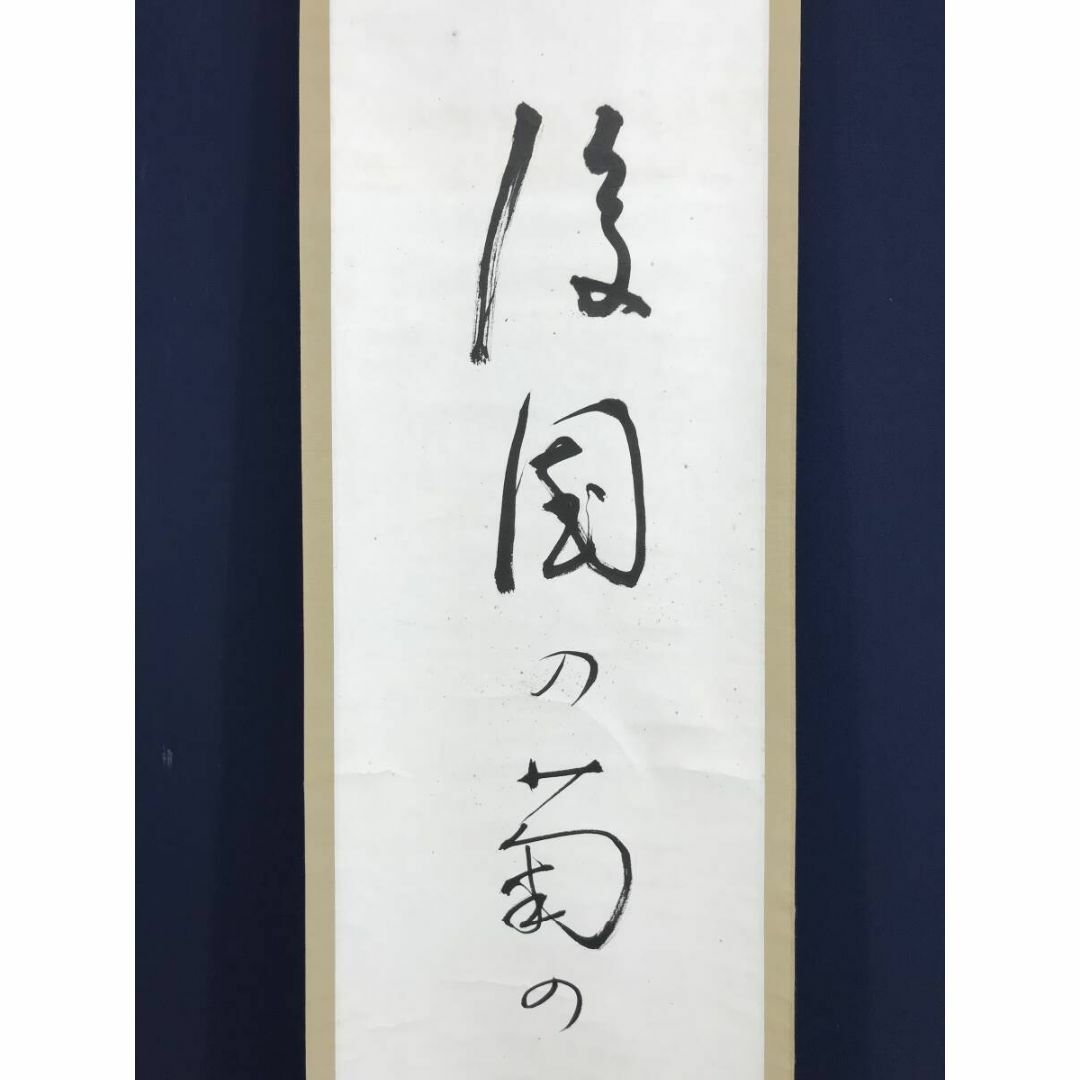 後園の菊の